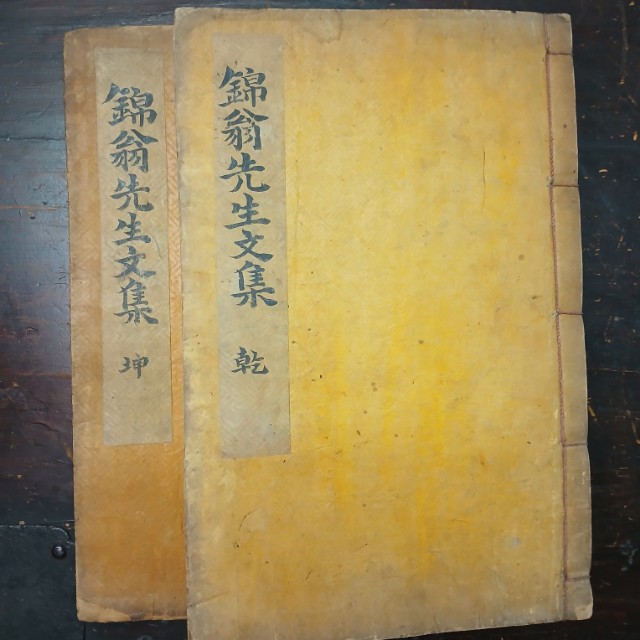 錦翁先生文集 乾
錦翁先生文集 坤